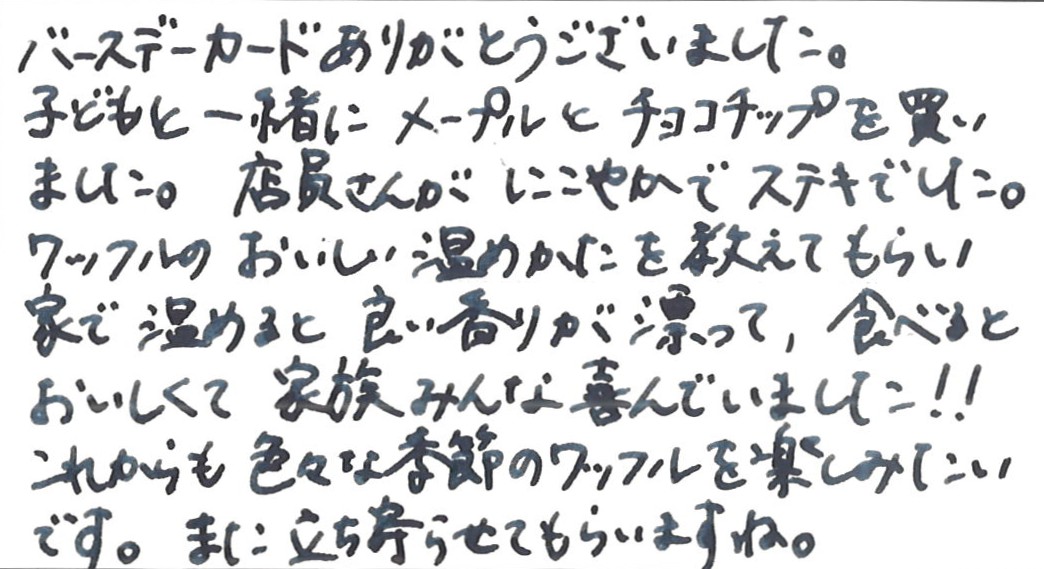 バースデーカードありがとうございました。
子どもと一緒に メープルと チョコチップを買い
ました。 店員さんが にこやかで ステキでした。
ワッフルの おいしい 温めかたを教えてもらい
家で 温めると 良い香りが 漂って, 食べると
おいしくて 家族みんな喜んでいました!!
これからも 色々な季節のワッフルを楽しみたい
です。 また 立ち寄らせてもらいますね。